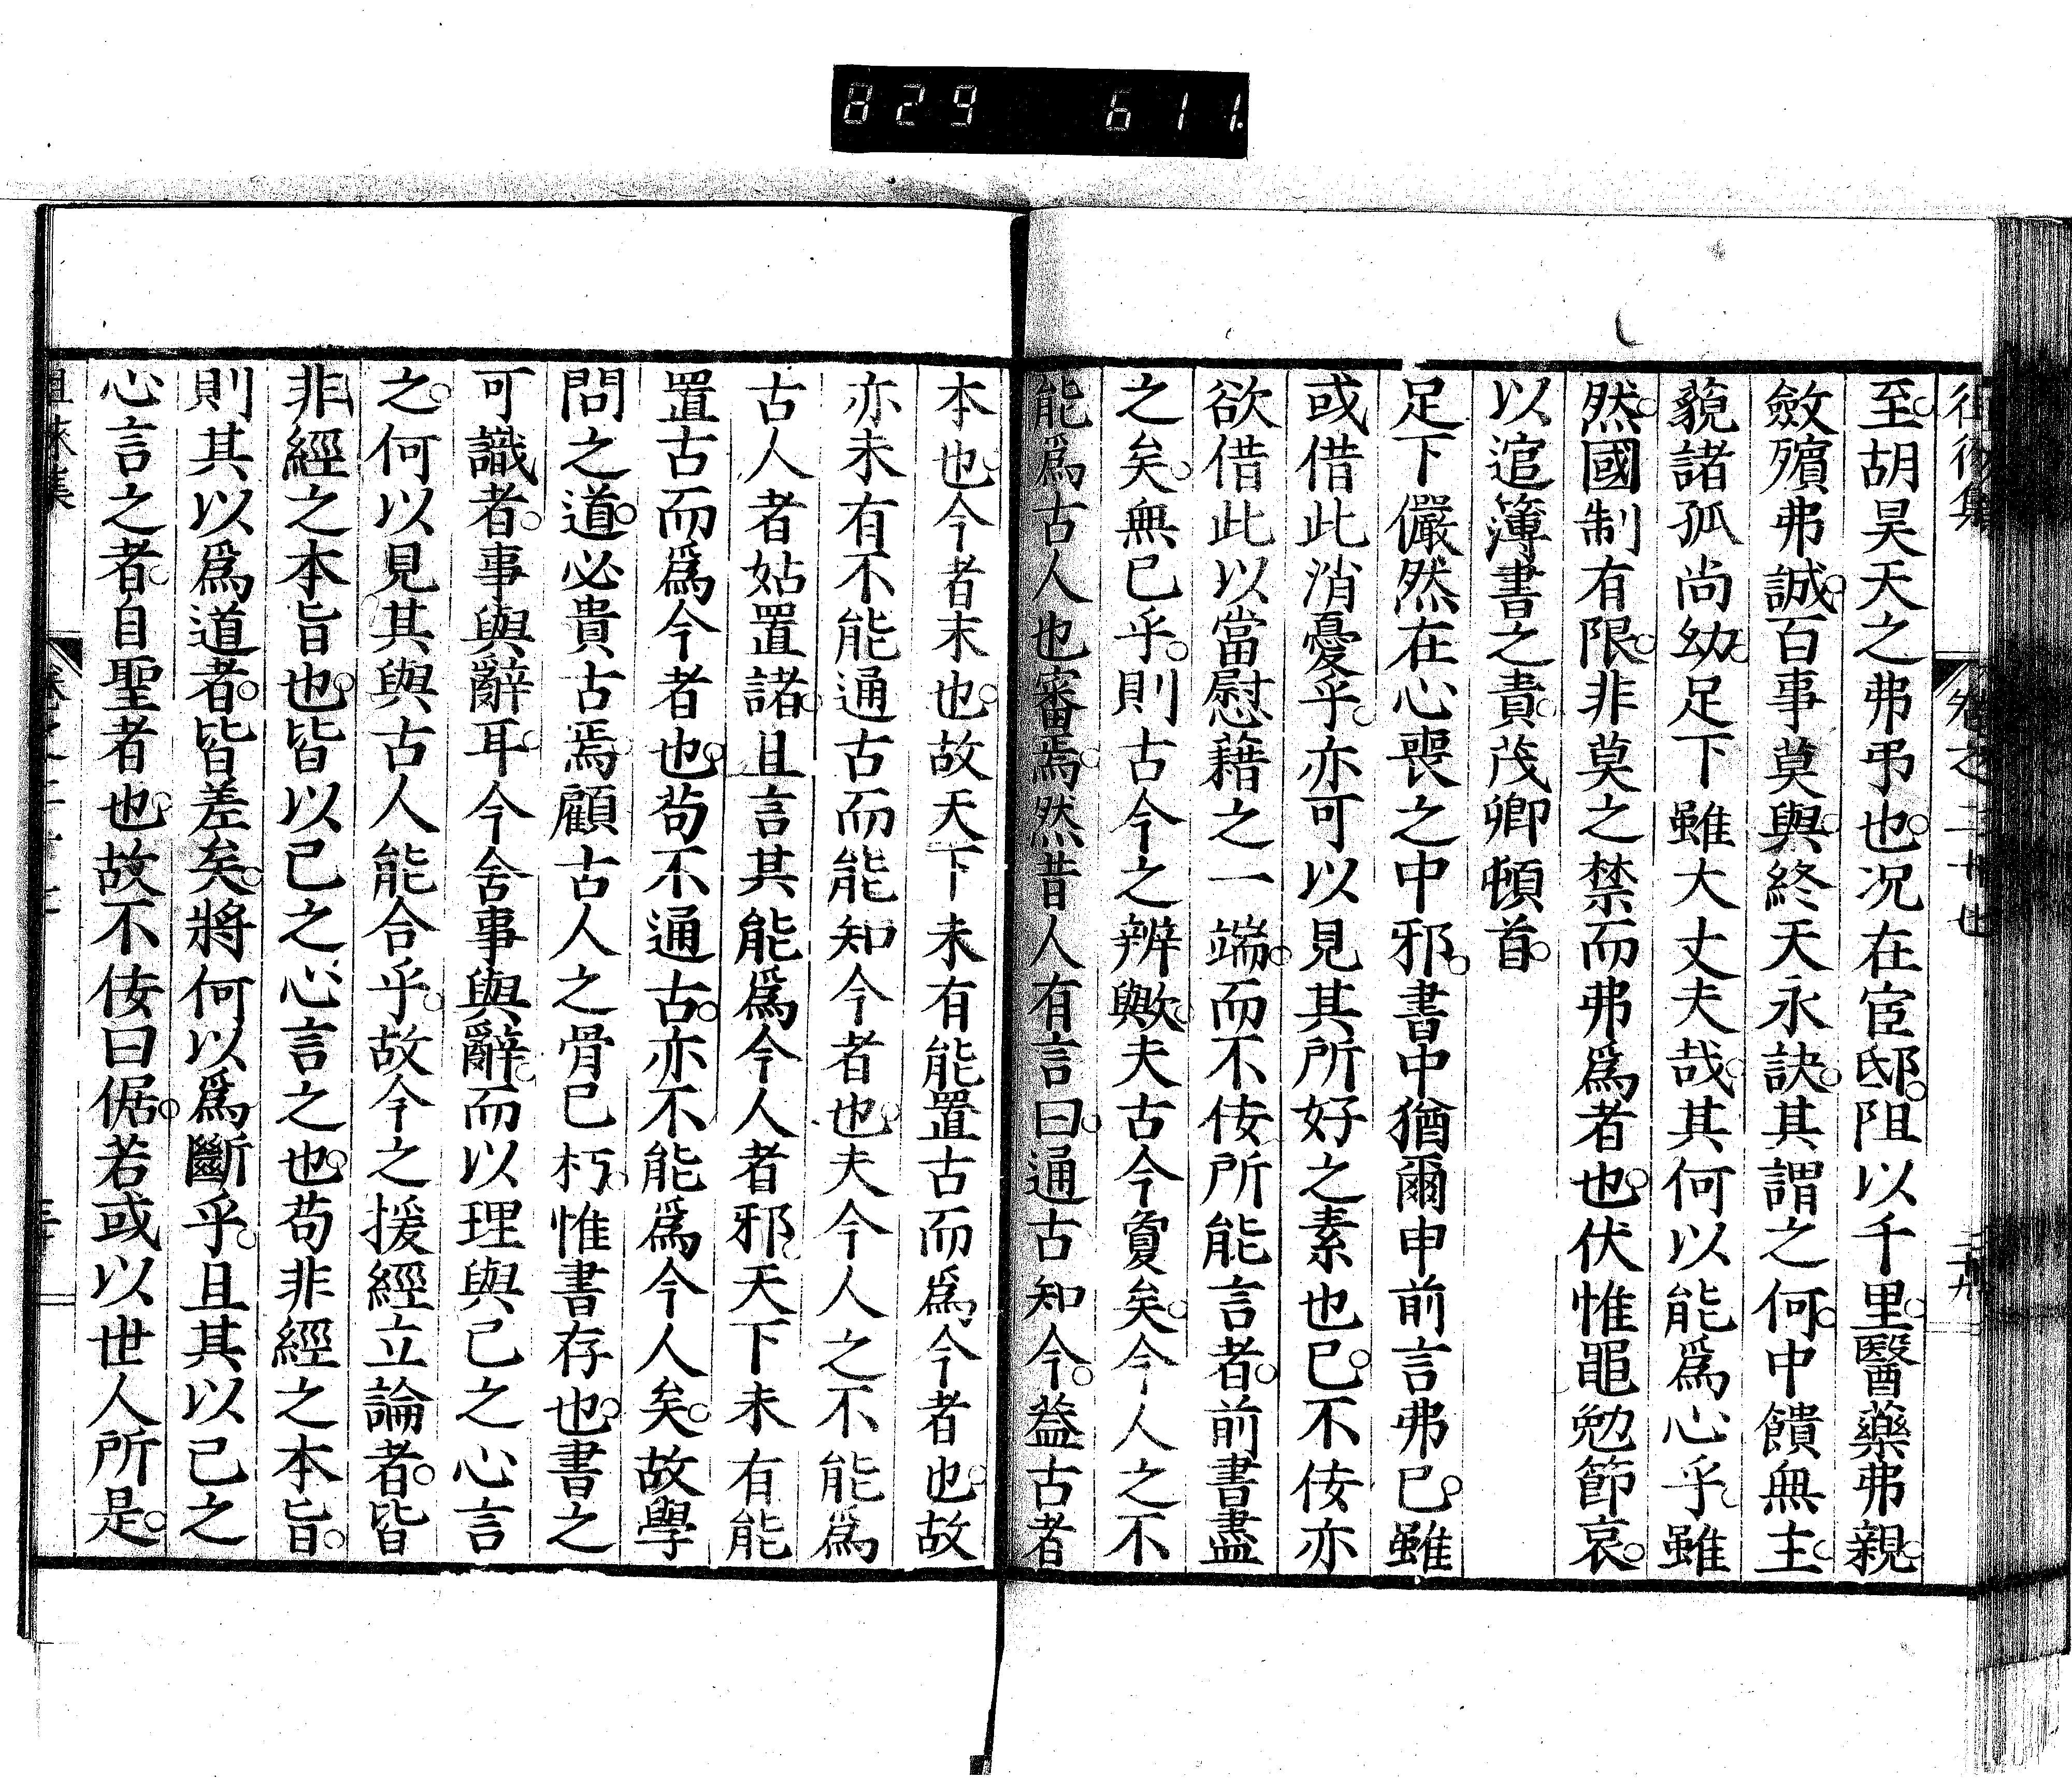 829 611.
至。胡昊天之弗弔也。况在宦邸。阻以千里。醫藥弗親。
斂殯弗誠。百事莫與。終天永訣。其謂之何。中饋無主。
藐諸孤尚幼。足下雖大丈夫哉。其何以能爲心乎。雖
然。國制有限。非莫之禁而弗爲者也。伏惟黽勉節哀。
以逭簿書之責。茂卿頓首。
足下儼然在心喪之中邪。書中猶爾申前言弗已。雖
或借此消憂乎。亦可以見其所好之素也已。不佞亦
欲借此以當慰藉之一端。而不佞所能言者。前書盡
之矣。無已乎。則古今之辨歟。夫古今敻矣。今人之不
能爲古人也審焉。然昔人有言曰。通古知今。蓋古者
本也。今者末也。故天下未有能置古而爲今者也。故
亦未有不能通古而能知今者也。夫今人之不能爲
古人者姑置諸。且言其能爲今人者邪。天下未有能
置古而爲今者也。苟不通古。亦不能爲今人矣。故學
問之道。必貴古焉。顧古人之骨已朽。惟書存也。書之
可識者。事與辭耳。今舍事與辭。而以理與己之心言
之。何以見其與古人能合乎。故今之援經立論者。皆
非經之本旨也。皆以己之心言之也。苟非經之本旨。
則其以爲道者。皆差矣。將何以爲斷乎。且其以己之
心言之者。自聖者也。故不佞曰倨。若或以世人所是。